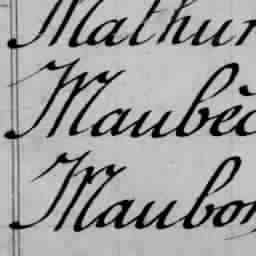 Mathur
Maubèc
Maubon